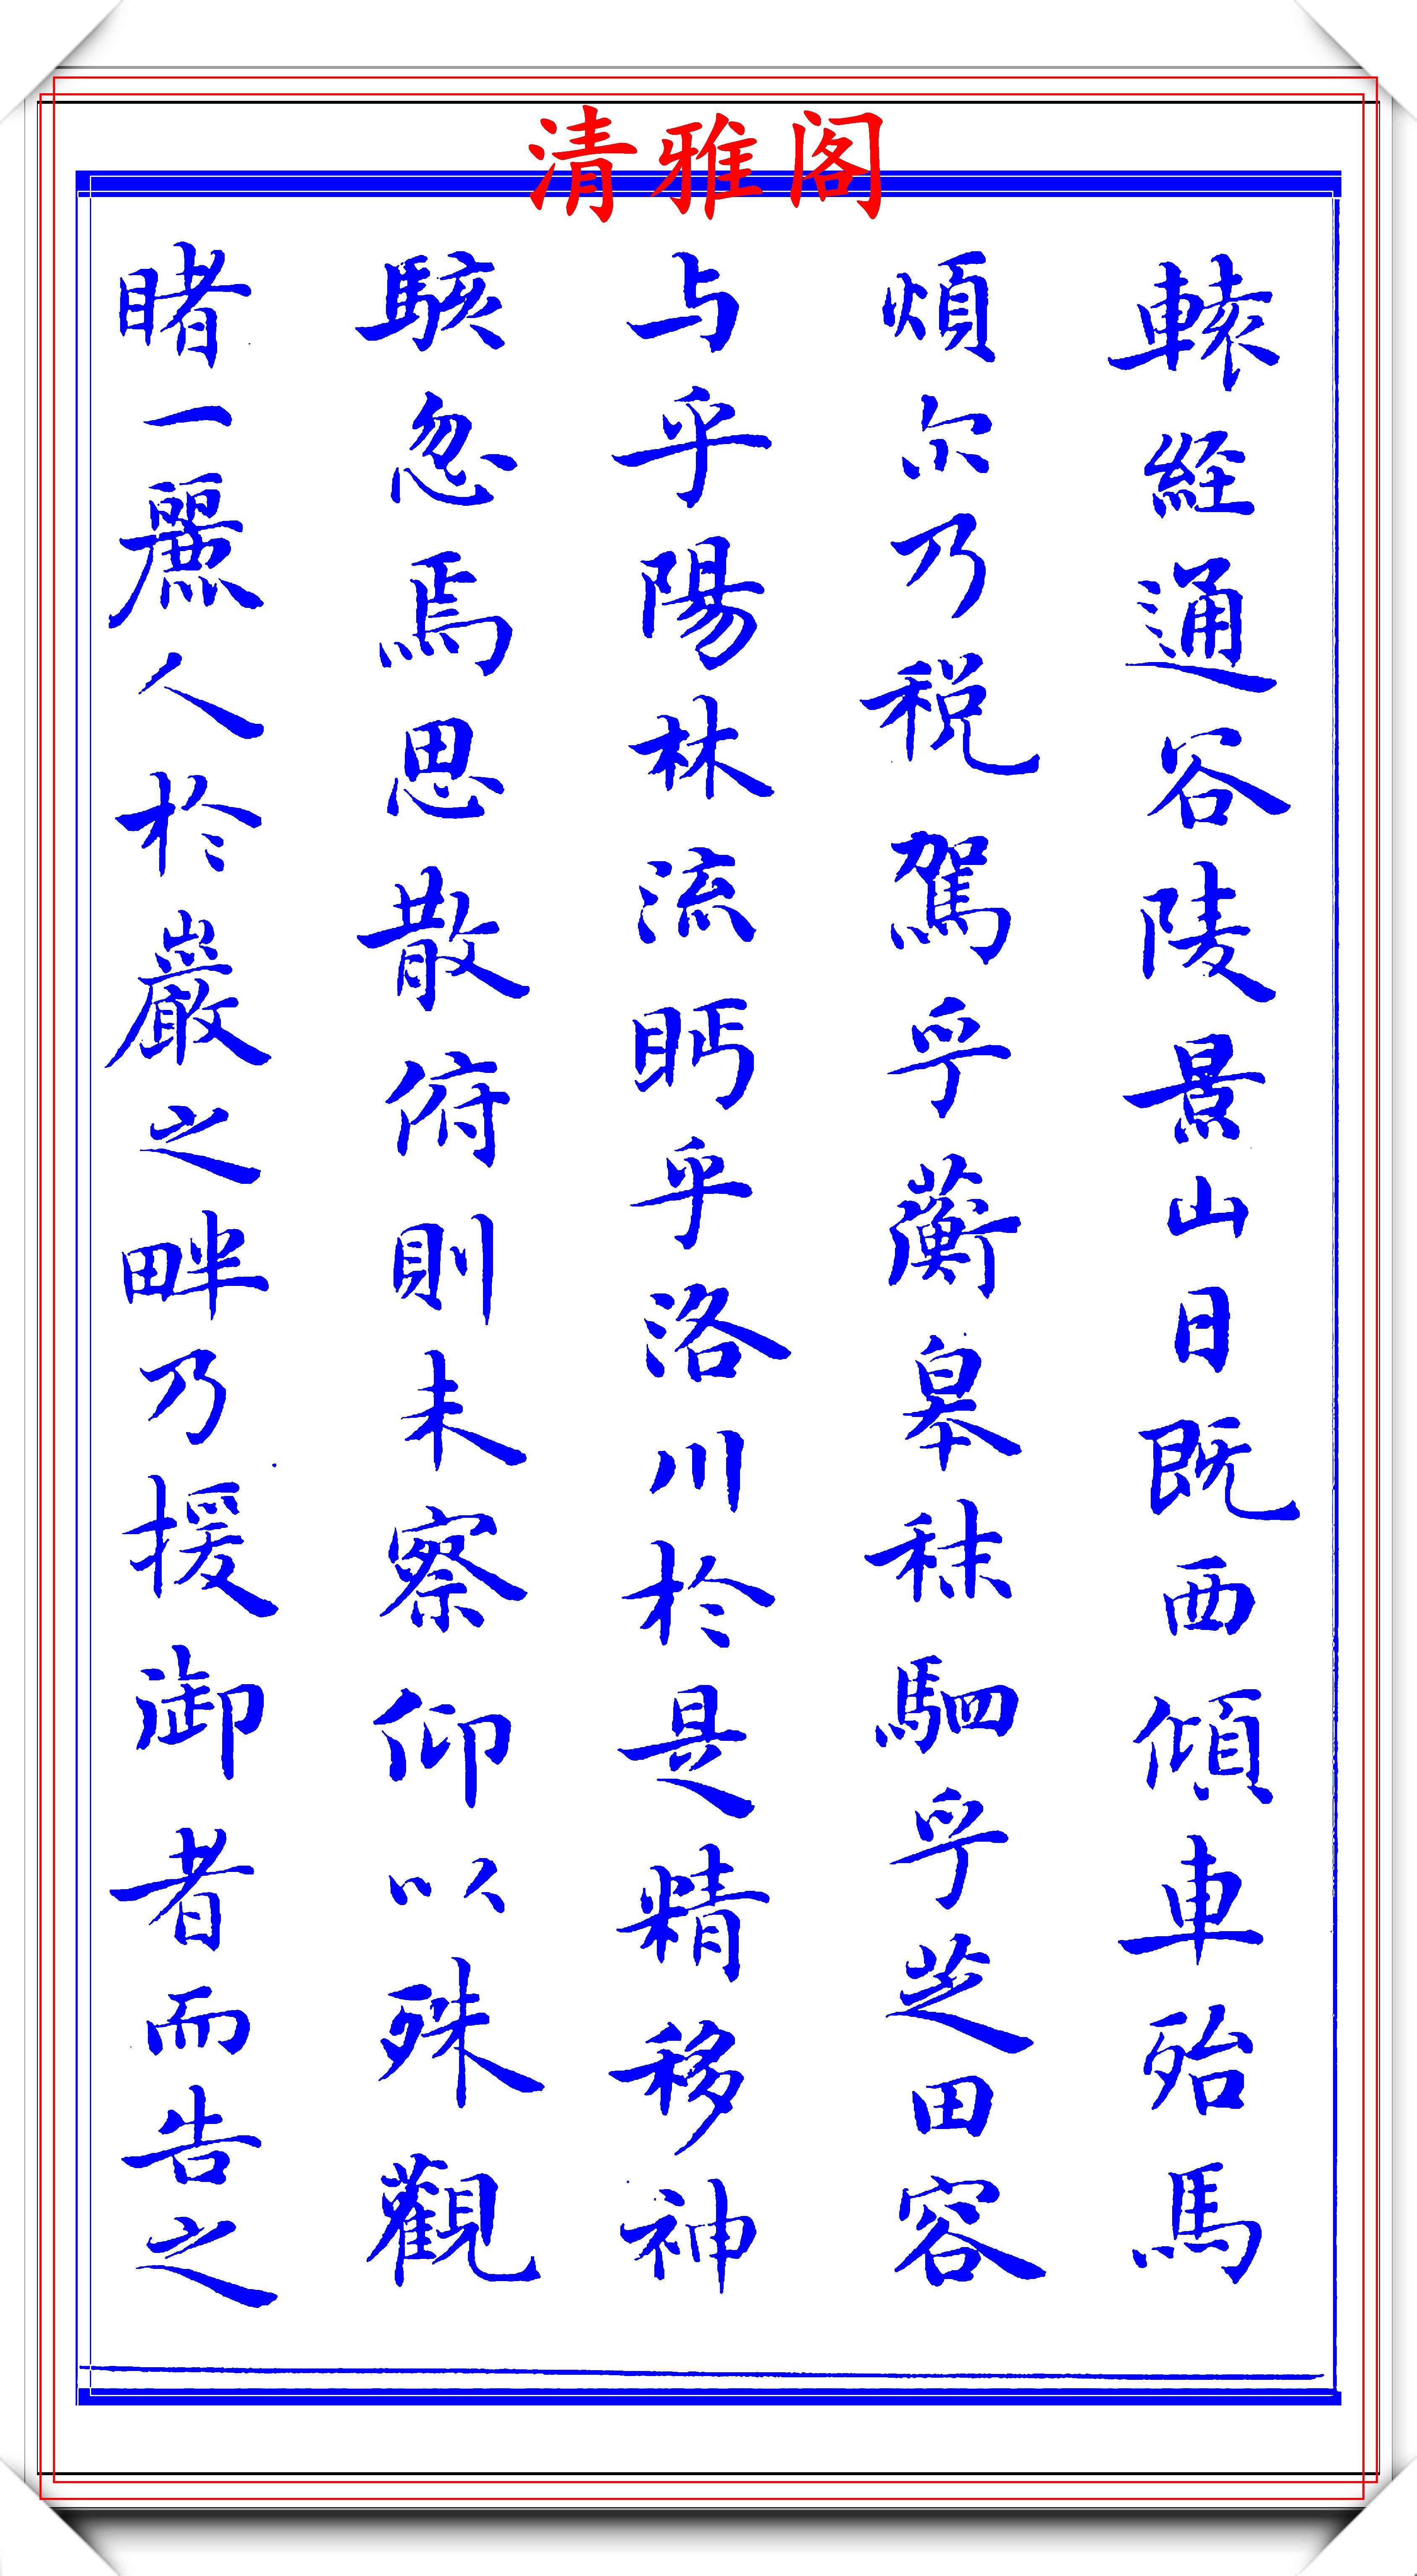 清雅阁
轅經通谷陵景山日既西傾車殆馬
煩尔乃税駕乎蘅皋秣駟乎芝田容
与乎陽林流眄乎洛川於是精移神
駭忽焉思散俯則未察仰以殊觀
睹一麗人於巖之畔乃援御者而告之